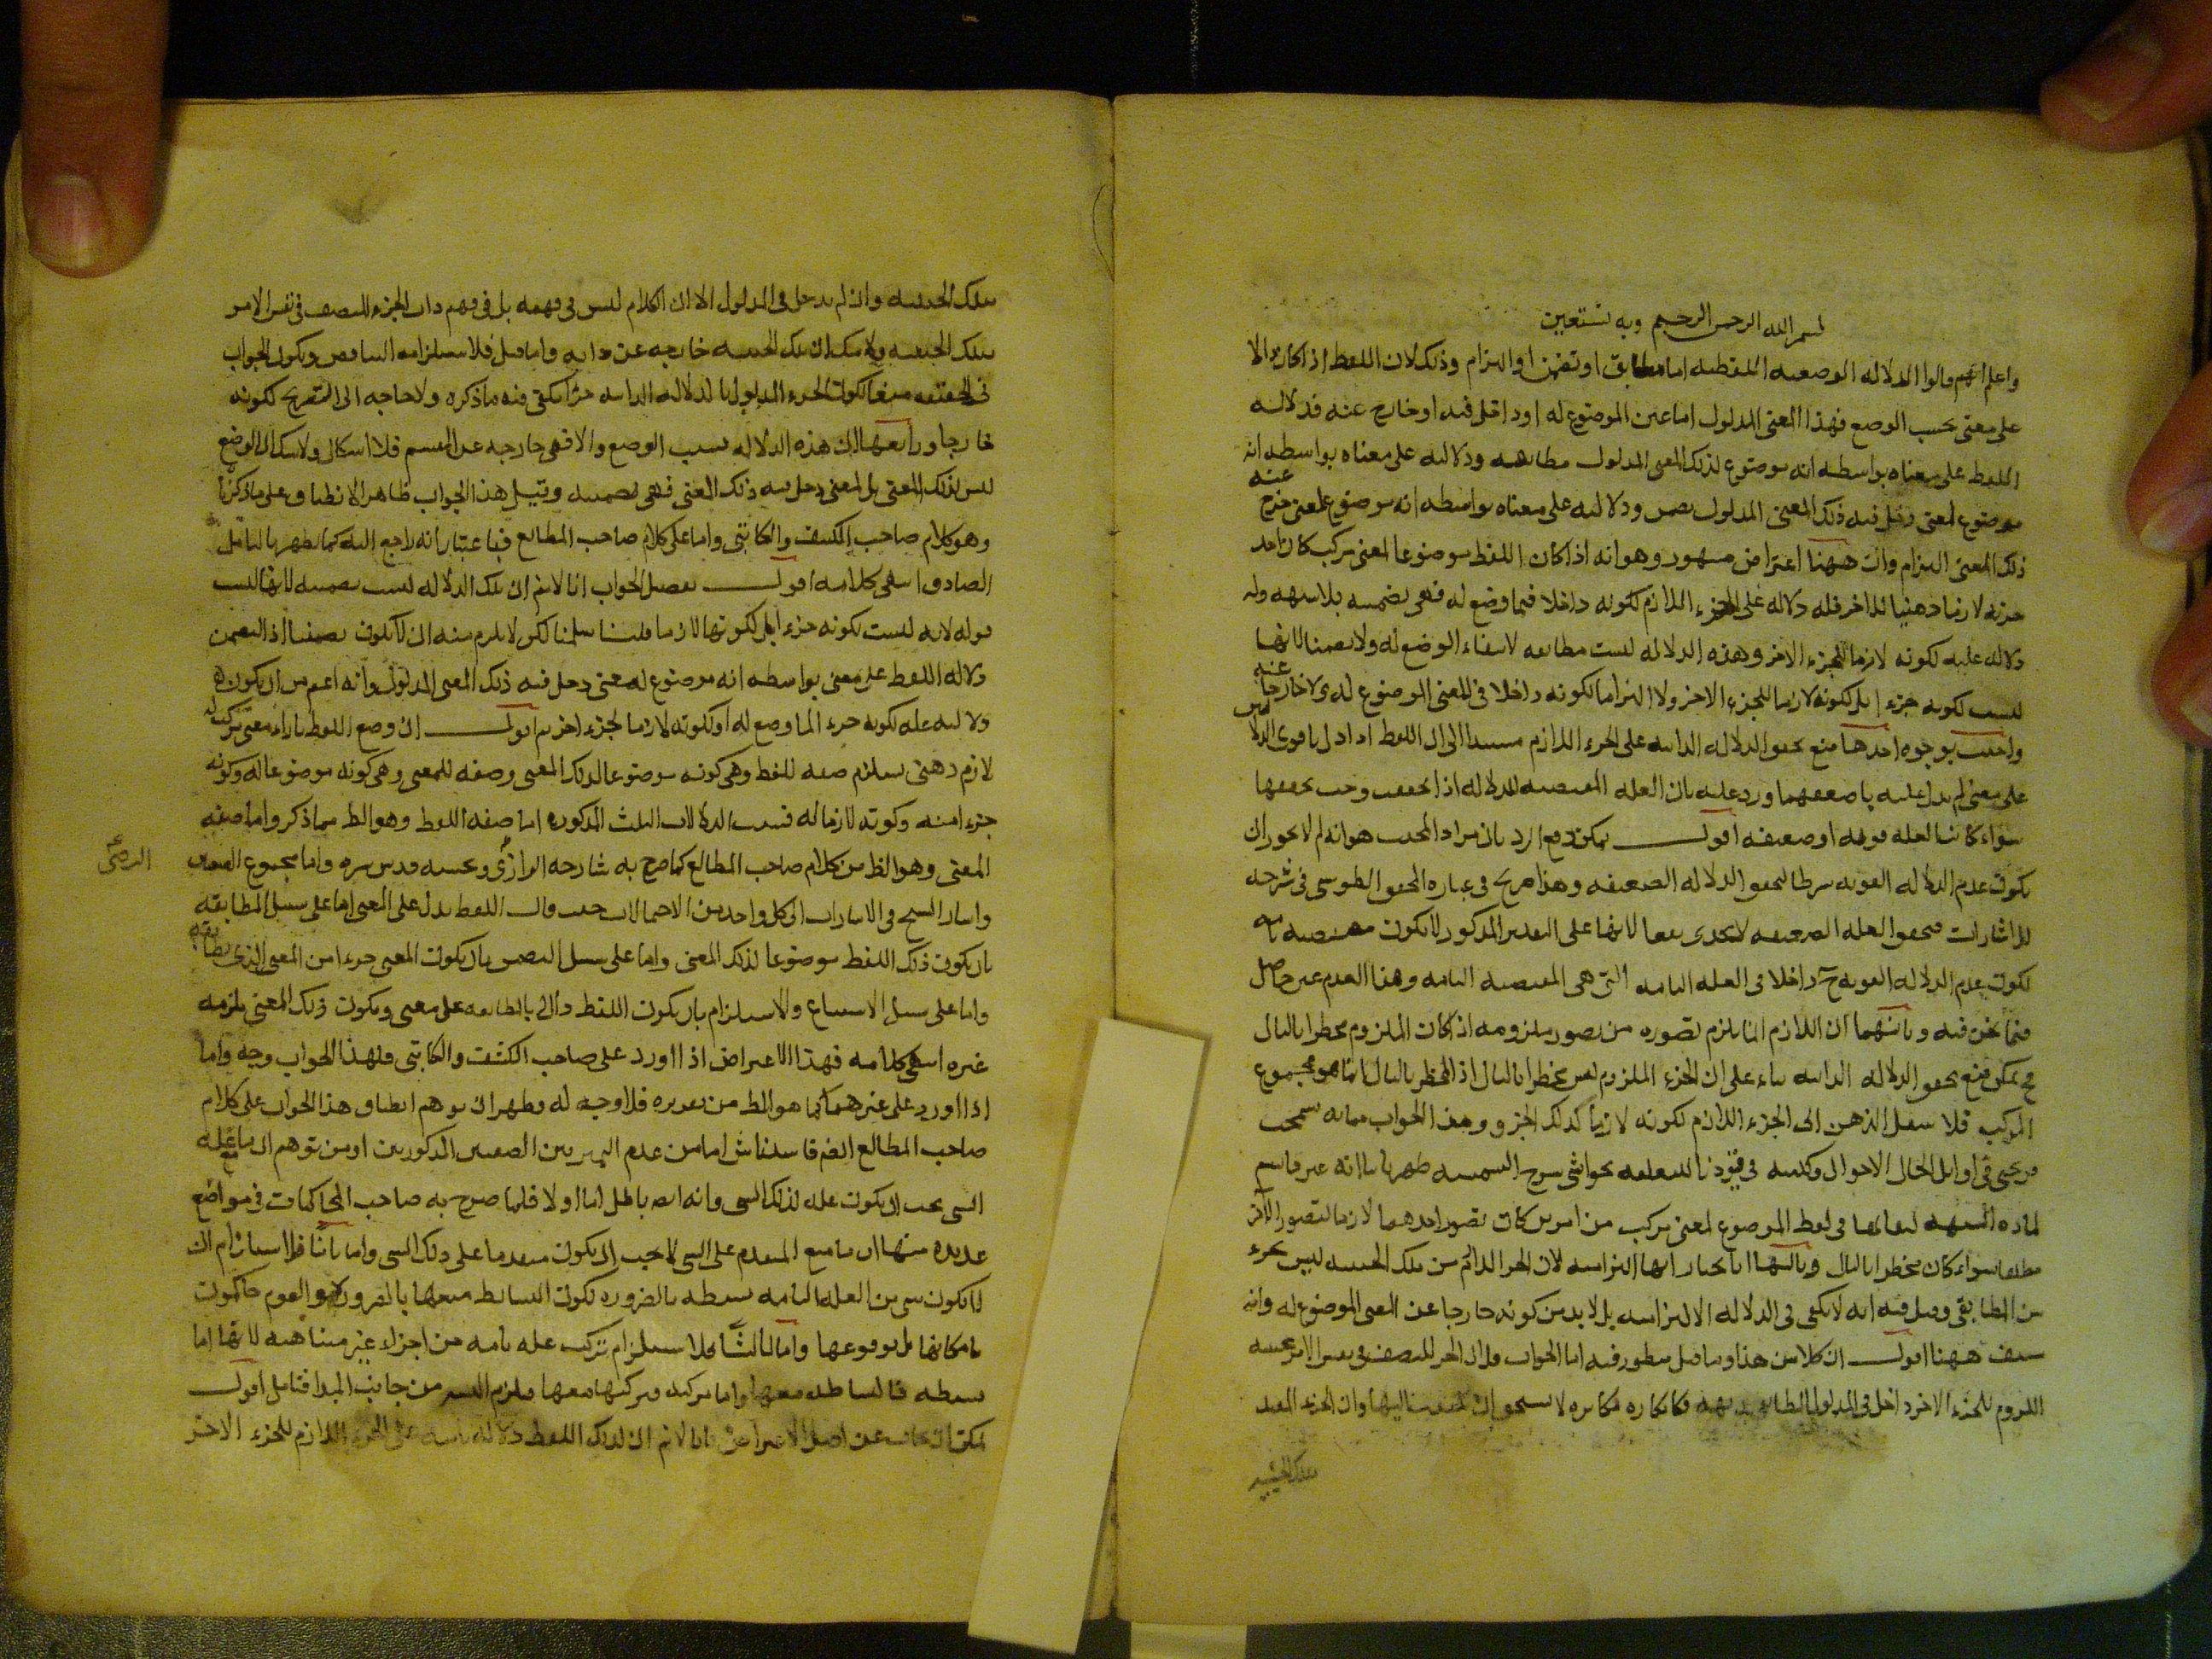 بسم الله الرحمن الرحيم وبه نستعين
واعلم انهم قالوا الدلاله الوضعيه اللفظيه اما مطابق او تضمن او التزام وذلك لان اللفظ اذا كان دالا
على معنى بحسب الوضع فهذا المعنى المدلول اما عين الموضوع له او داخل فيه او خارج عنه فدلاله
اللفظ على معناه بواسطه انه موضوع لذلك المعنى المدلول مطابقه ودلالته على معناه بواسطه انه
موضوع لمعنى دخل فيه ذلك المعنى المدلول تضمن ودلالته على معناه بواسطه انه موضوع لمعنى خرج عنه
ذلك المعنى التزام وان ههنا اعتراض مشهور وهو انه اذا كان اللفظ موضوعا لمعنى مركب كان احد
جزئه لازما ذهنيا للاخر فله دلاله على الجزء اللازم لكونه داخلا فيما وضع له فهى تضمنيه بلا شبهه وله
دلاله عليه لكونه لازما للجزء الاخر وهذه الدلاله ليست مطابقه لانتفاء الوضع له ولا تضمنا لانها
ليست لكونه جزء ابل لكونه لازما للجزء الاخر ولا التزاما لكونه داخلا فى المعنى الموضوع له لا خارجا عنه
واجيب بوجوه احدها منع تحقق الدلاله الثانيه على الجزء اللازم مستندا الى ان اللفظ اذا دل باقوى الدلالتين
على معنى لم يدل عليه باضعفهما ورد عليه بان العله المقتضيه للدلاله اذا تحققت وجب تحققها
سواء كانت العله قويه او ضعيفه اقول يمكن دفع الرد بان مراد المجيب هو انه لم لا يجوز ان
يكون عدم الدلاله القويه شرطا لتحقق الدلاله الضعيفه وهذا صريح فى عباره المحقق الطوسى فى شرحه
للاشارات فتحقق العله الضعيفه لا يجدى نفعا لانها على التقدير المذكور لا يكون مقتضيه تامه
لكون عدم الدلاله القويه ح داخلا فى العله التامه التى هى المقتضيه التامه وهذا العدم غير حاصل
فيما نحن فيه وثانيهما ان اللازم انما يلزم تصوره من تصور ملزومه اذا كان الملزوم مخطرا بالبال
فح يمكن منع تحقق الدلاله الثانيه بناء على ان الجزء الملزوم ليس مخطرا بالبال اذ المخطر بالبال انما هو مجموع
المركب فلا ينتقل الذهن الى الجزء اللازم لكونه لازما كذلك الجزء وهذا الجواب مما نه سمحت
قريحتى فى اوايل الحال الاحوال وكتبته فى تعليقه بحواشى شرح الشمسيه ظهر بانه غير حاسم
لماده الشبهه لبقائها فى لفظ الموضوع لمعنى مركب من امرين كان تصور احدهما لازما لتصور الاخر
مطلقا سواء كان مخطرا بالبال وثالثها انا نختار انها التزاميه لان الجزء الدائم من تلك الحيثيه ليس بجزء
من المطابقى وقيل فيه انه لا يكفى فى الدلاله الالتزاميه بل لا بد من كونه خارجا عن المعنى الموضوع له وانه
ههنا اقول ان كلا من هذا وما قيل منظور فيه اما الجواب فلان الجزء المتصف فى نفس الامر بحيثيه
اللزوم للجزء الاخر داخل فى المدلول المطابقى بديهه فانكاره مكابره لا يستحق ان يلتفت اليها وان الجزء المقيد
بتلك الحيثيه
بتلك الحيثيه وان لم يدخل فى المدلول الا ان الكلام ليس فى فهمه بل فى فهم ذات الجزء المتصف فى نفس الامر
بتلك الحيثيه ولا شك ان تلك الحيثيه خارجه عن ذاته واما قيل فلاستلزامه التناقض ويكون الجواب
فى الحقيقه منعا لكون الجزء المدلول بالدلاله الثانيه جزءا يكفى فيه ما ذكره ولا حاجه الى التصريح لكونه
خارجا ورابعها ان هذه الدلاله بسبب الوضع والا فهى خارجه عن المقسم فلا اشكال ولا شك ان الوضع
ليس لذلك المعنى بل لمعنى دخل فيه ذلك المعنى فهى تضمنيه وقيل هذا الجواب ظاهر الانطباق على ما ذكرنا
وهو كلام صاحب الكشف والكاتبى واما على كلام صاحب المطالع فباعتبار انه راجع اليه كما يظهر بالتامل
الصادق انتهى كلامه اقول تفصيل الجواب انا لا نم ان تلك الدلاله ليست تضمنيه لانها ليست
قوله لانه ليست لكونه جزء ابل لكونها لازما قلنا سلمنا لكن لا يلزم منه ان لا يكون تضمنا اذ التضمن
دلاله اللفظ على معنى بواسطه انه موضوع لمعنى دخل فيه ذلك المعنى المدلول وانه اعم من ان يكون
دلالته عليه لكونه جزء الما وضع له او لكونه لازما لجزء اخر ثم اقول ان وضع اللفظ بازاء معنى مركب له
لازم ذهنى يستلزم صفه للفظ وهى كونه موضوعا لذلك المعنى وصفه للمعنى وهى كونه موضوعا له وكونه
جزء امنه وكونه لازما له فسبب الدلالات الثلث المذكوره اما صفه اللفظ وهو الظ مما ذكر واما صفه
المعنى وهو الظ من كلام صاحب المطالع كما صرح به شارحه الرازى ومحشيه قدس سره واما مجموع الصفتين
الرضى
واشار الشيخ فى الاشارات الى كل واحد من الاحتمالات حيث قال اللفظ يدل على المعنى اما على سبيل المطابقه
بان يكون ذلك اللفظ موضوعا لذلك المعنى واما على سبيل التضمن بان يكون المعنى جزءا من المعنى الذى يطابقه
واما على سبيل الاستتباع والاستلزام بان يكون اللفظ دالا بالمطابقه على معنى ويكون ذلك المعنى يلزمه
غيره انتهى كلامه فهذا الاعتراض اذا اورد على صاحب الكشف والكاتبى فلهذا الجواب وجه واما
اذا اورد على غيرهما كما هو الظ من تقريره فلا وجه له ويظهر ان توهم انطباق هذا الجواب على كلام
صاحب المطالع ناش اما من عدم التمييز بين الصفتين المذكورتين او من توهم ان ما مع عله
الشى يجب ان يكون عله لذلك الشى وانه باطل اما اولا فلما صرح به صاحب المحاكمات فى مواضع
عديده منها ان ما مع المتقدم على الشى لا يجب ان يكون متقدما على ذلك الشى واما ثانيا فلاستلزام ان
لا يكون شى من العله التامه بسيطه بالضروره لكون البسائط معها حاكمون
بامكانها بل بوقوعها واما ثالثا فلاستلزام تركب عله تامه من اجزاء غير متناهيه لانها اما
بسيطه فالبساطه معها واما مركبه فتركبها معها فيلزم التس من جانب المبدا فتامل اقول
يمكن ان يجاب عن اصل الاعتراض بانا لا نم ان لذلك اللفظ دلاله ثانيه على الجزء اللازم للجزء الاخر